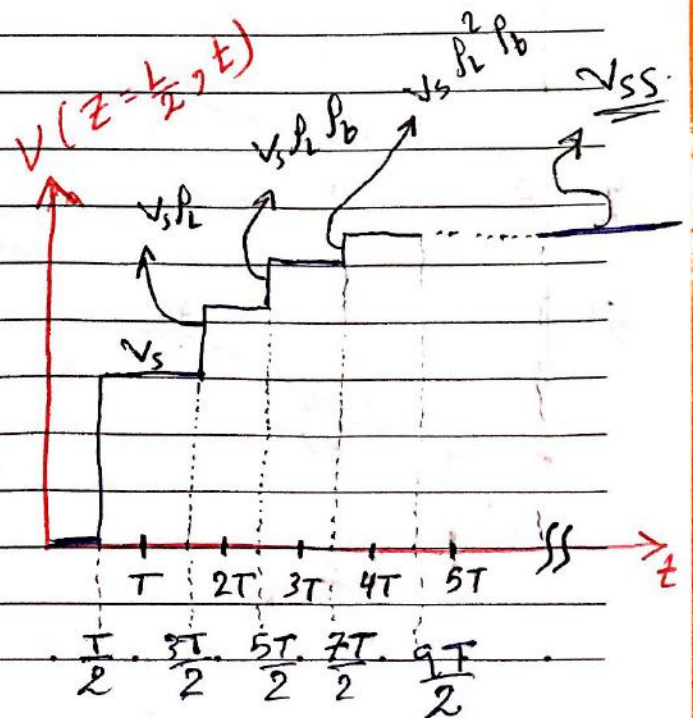 V(z=L/2, t)
V_s ρ_L
V_s ρ_L ρ_b
V_s ρ_L² ρ_b
V_SS.
V_s
T 2T 3T 4T 5T
t
T/2 3T/2 5T/2 7T/2 9T/2